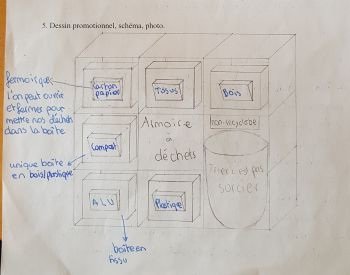 5. Dessin promotionnel, schéma, photo.
fermoir que
l'on peut ouvrir
et fermer pour
mettre nos déchets
dans la boîte
carton
papier
Tissus
Bois
non-recyclable
Armoire
à
déchets
Compost
unique boîte
en bois/plastique
Trier c'est pas
sorcier
ALU
Plastique
boîte en
tissu